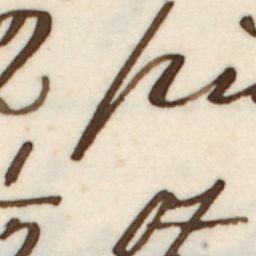 2 pi
1/2 of